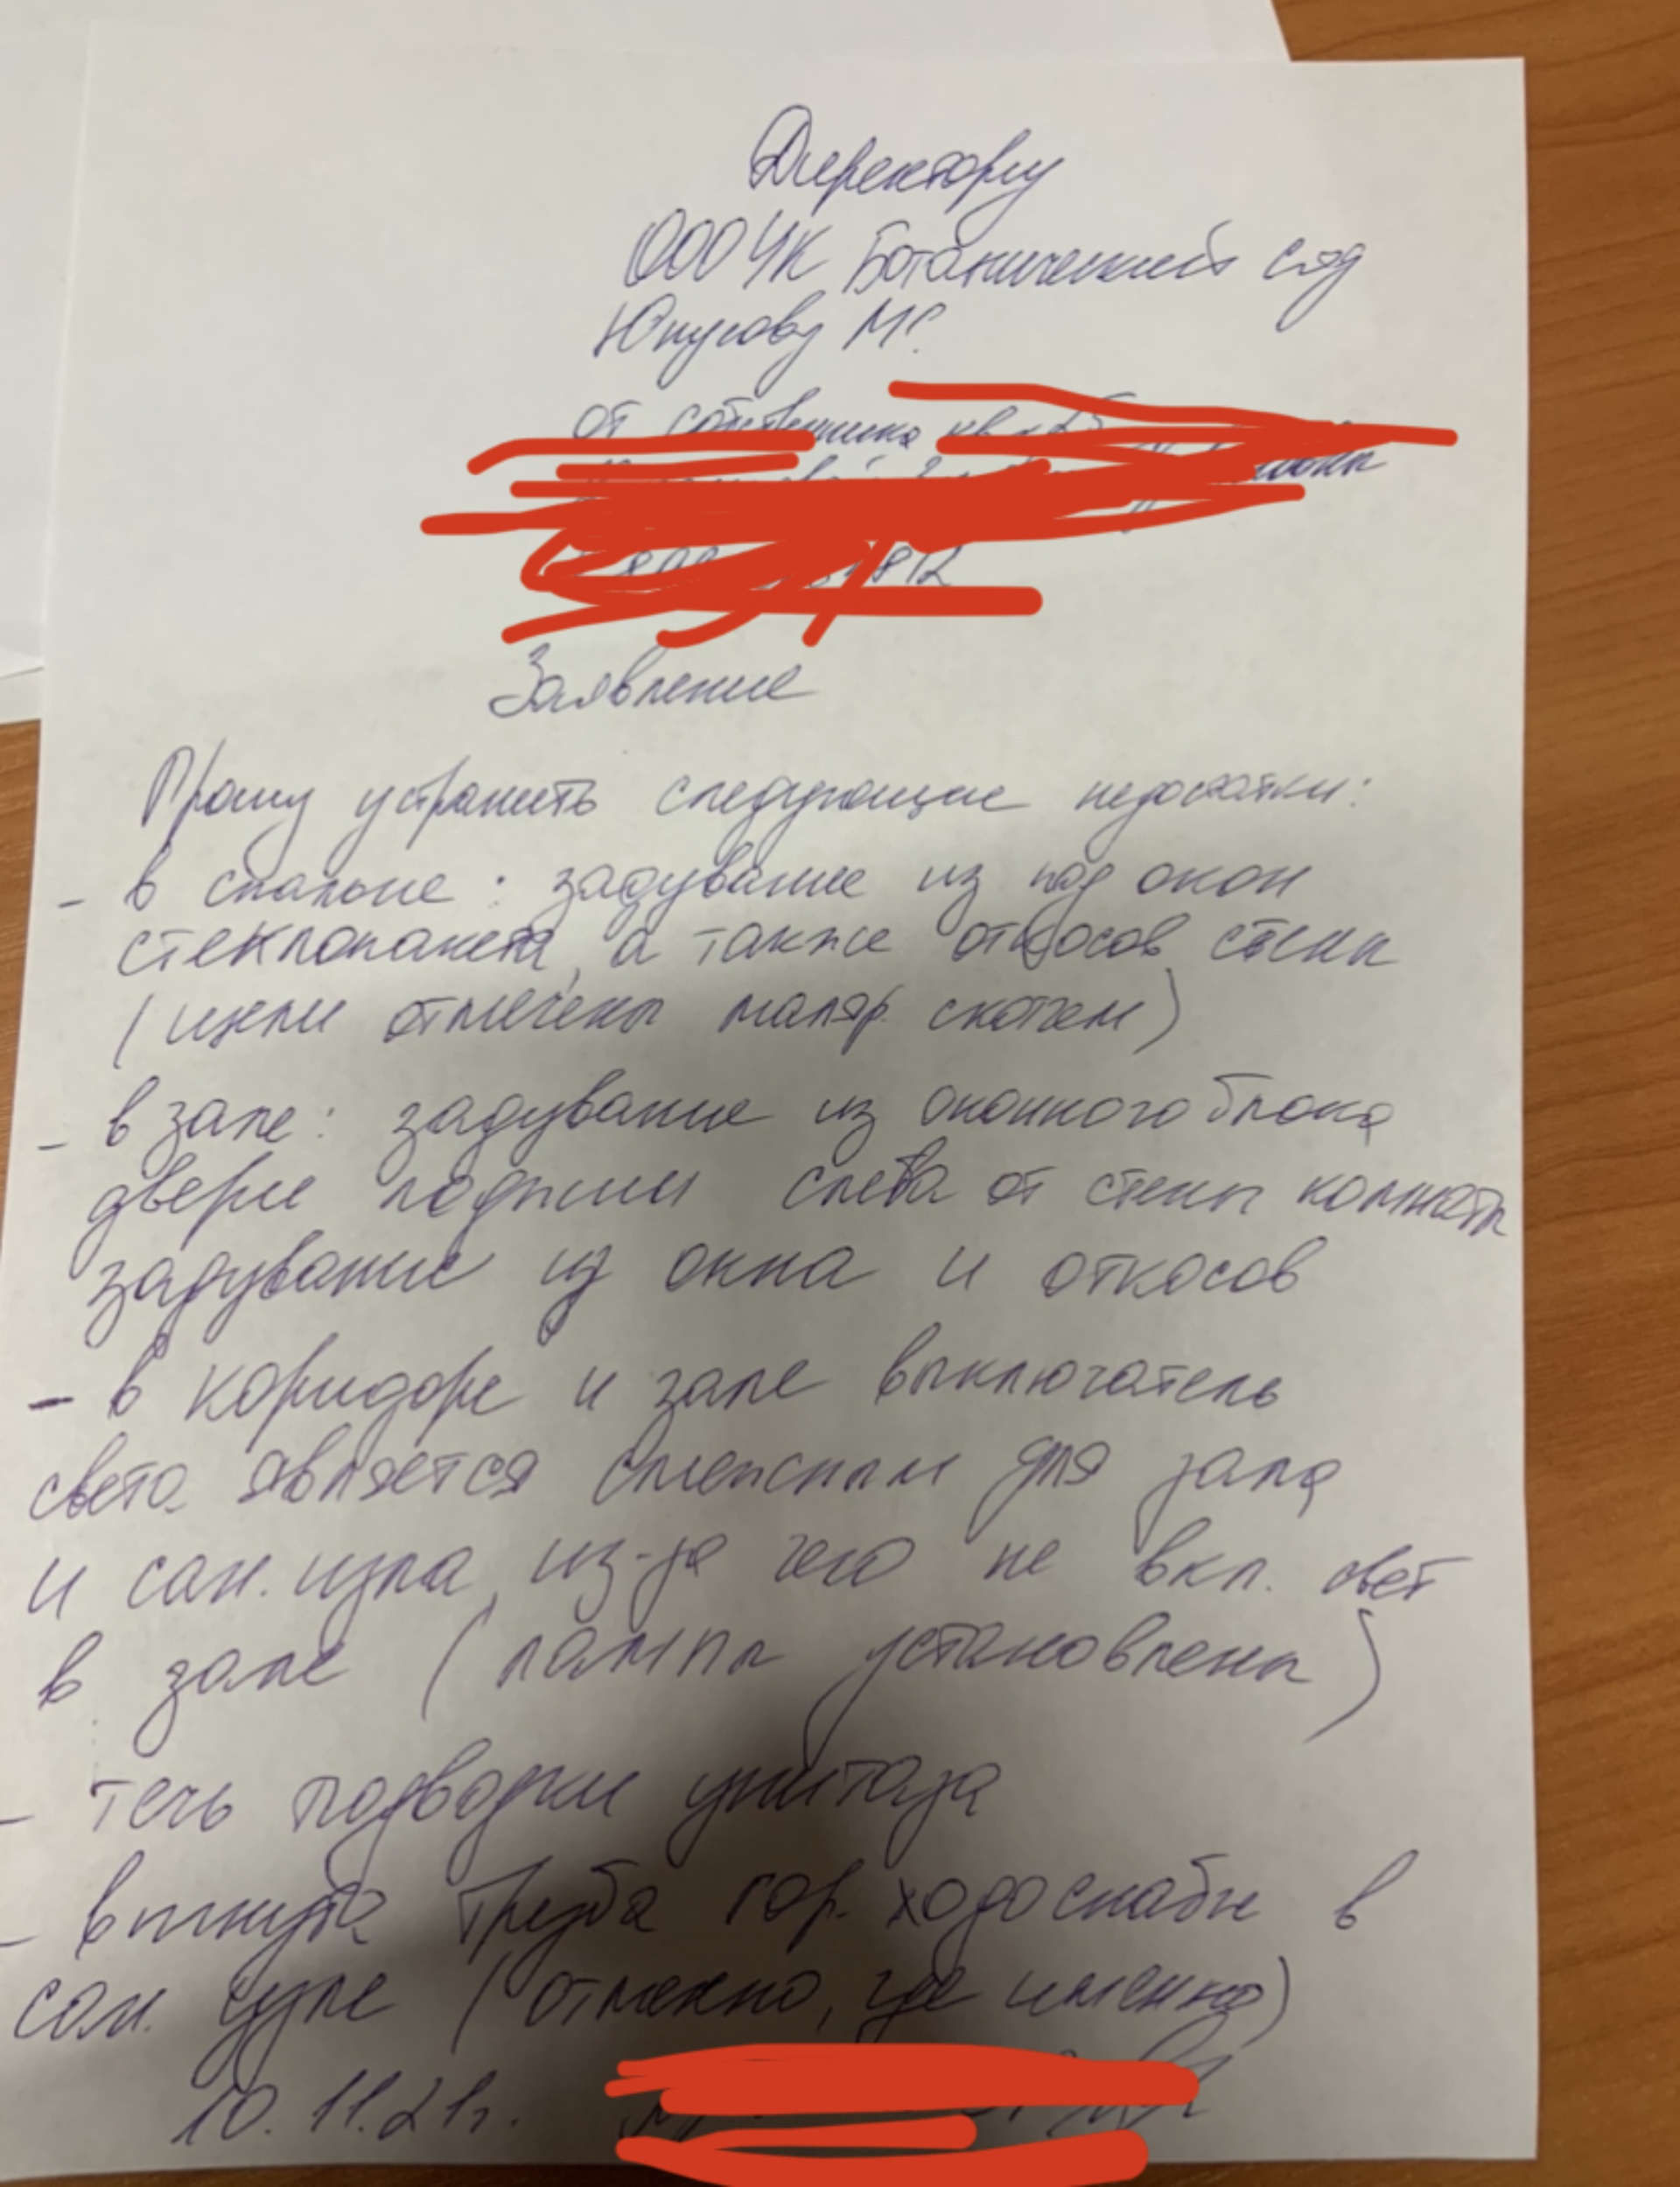 Директору
ООО УК Ботанический сад
Юнусову М.С.
от собственника кв
Заявление
Прошу устранить следующие недостатки:
- в спальне: задувание из под окон
стеклопакета, а также откосов стены
(щели отмечены маляр. скотчем)
- в зале: задувание из оконного блока
двери лоджии слева от стены комнаты
задувание из окна и откосов
- в коридоре и зале выключатель
света является смежным для зала
и сан. узла, из-за чего не вкл. свет
в зале (лампы установлены)
- течь подводки унитаза
- труба гор. водоснабж в
сан. узле (отмечено, где именно)
10.11.21г.